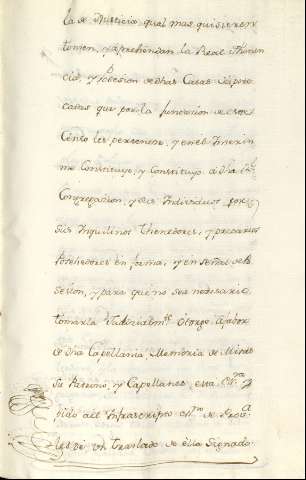 la de Justicia qual mas quisieren
tomen, y aprehendan la Real Tenen
cia, y Posesion de dhas Casas Capote
cadas que por la fundacion de este
Censo les pertenece, y en el Interin
me Constituyo, y Constituyo a dha
Congregacion, y sus Individuos por
sus Inquilinos Thenedores, y precarios
Posehedores en forma, y en señal de Po
sesion, y para que no sea necesario
tomarla Judicialmte Otorgo a fabor
de dha Capellania Memoria de Misas
su Patrono, y Capellanes esta
pido al Infrascripto
les dé un traslado de ella Signado